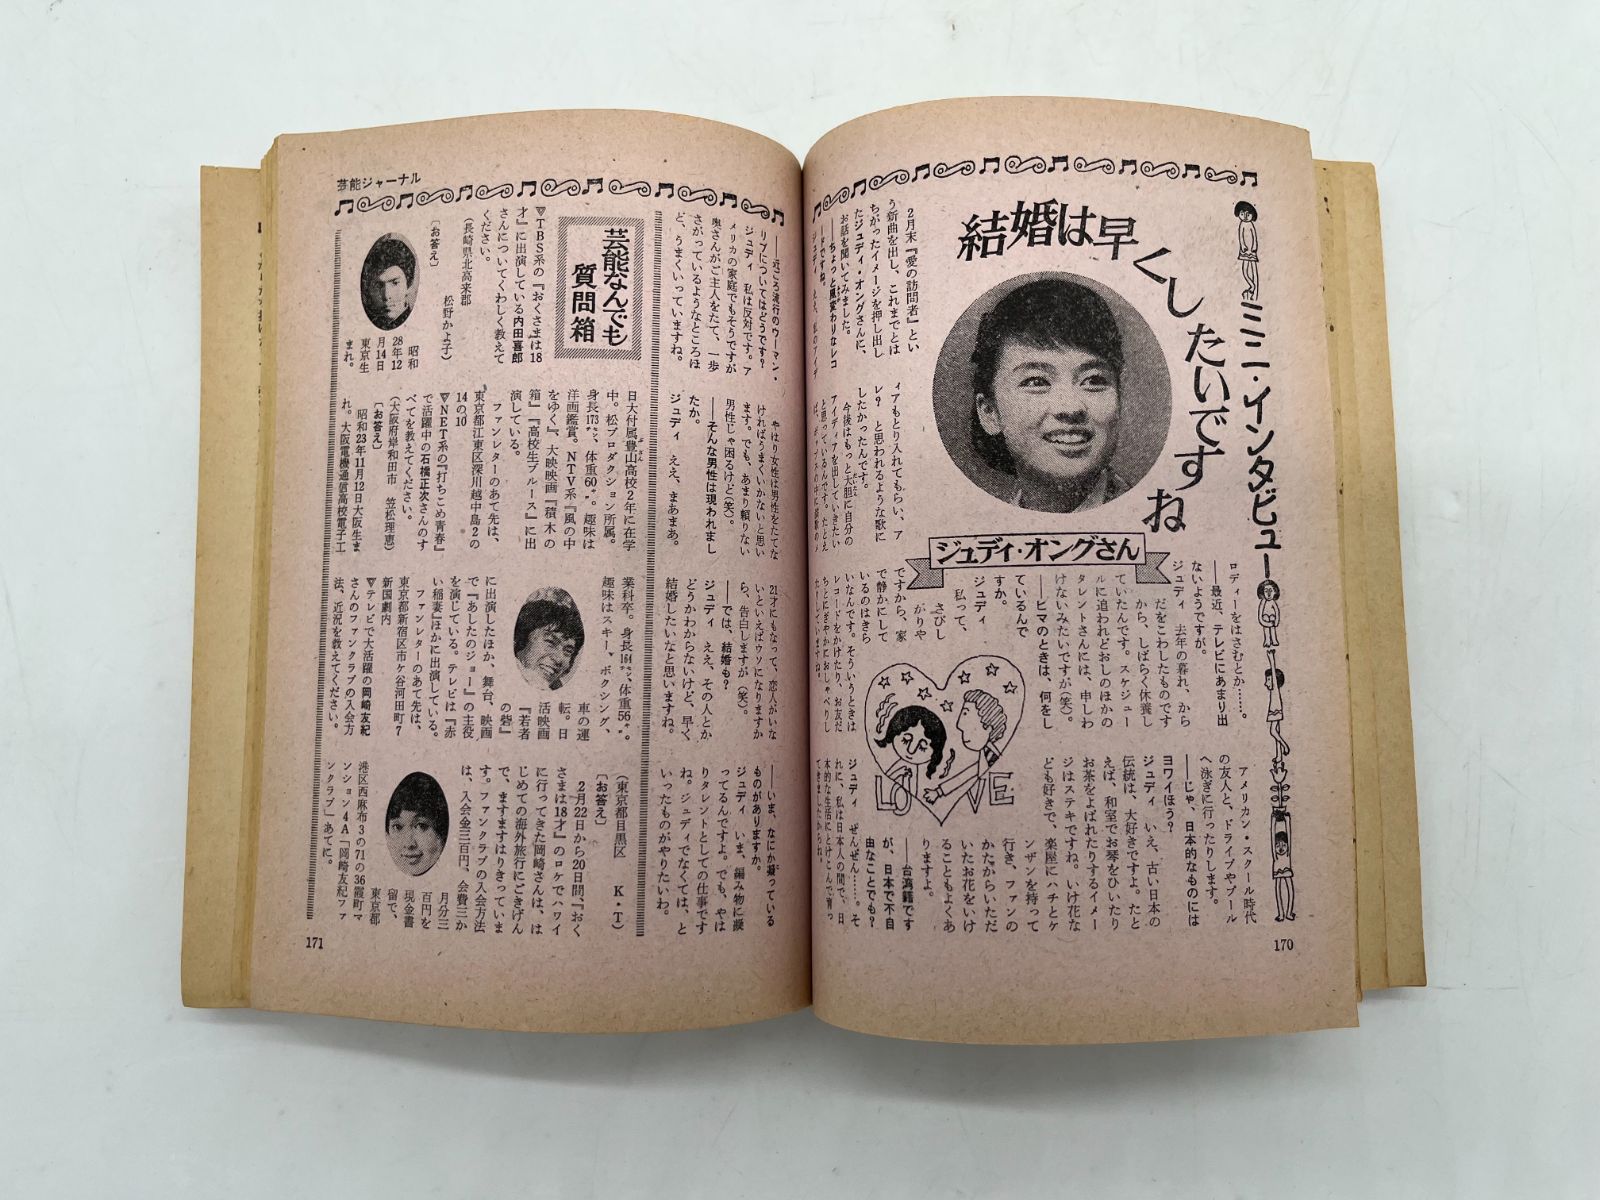 ミニ・インタビュー
結婚は早くしたいですね
ジュディ・オングさん
2月末『愛の訪問者』とい
う新曲を出し、これまでとは
ちがったイメージを押し出し
たジュディ・オングさんに、
お話を聞いてみました。
――ちょっと風変わりなレコ
ードですね。
ィアもとり入れてもらい、ア
レ? と思われるような歌に
したかったんです。
今後はもっと大胆に自分の
アイディアを出していきたい
と思っているんです。たとえ
ロディーをはさむとか……。
――最近、テレビにあまり出
ないようですが。
ジュディ 去年の暮れ、から
だをこわしたものです
から、しばらく休養し
ていたんです。スケジュー
ルに追われどおしのほかの
タレントさんには、申しわ
けないみたいですが(笑)。
――ヒマのときは、何をし
ているんで
すか。
ジュディ
私って、
さびし
がりや
ですから、家
で静かにして
いるのはきら
いなんです。そういうときは
レコードをかけたり、お友だ
ちとにぎやかにおしゃべりし
LOVE
アメリカン・スクール時代
の友人と、ドライブやプール
へ泳ぎに行ったりします。
――じゃ、日本的なものには
ヨワイほう?
ジュディ いえ、古い日本の
伝統は、大好きですよ。たと
えば、和室でお琴をひいたり
お茶をよばれたりするイメー
ジはステキですね。いけ花な
ども好きで、
楽屋にハチとケ
ンザンを持って
行き、ファンの
かたからいただ
いたお花をいけ
ることもよくあ
りますよ。
――台湾籍です
が、日本で不自
由なことでも?
ジュディ ぜんぜん……。そ
れに、私は日本人の間で、日
本的な生活にとけこんで育っ
てきましたからね。
170
芸能ジャーナル
――近ごろ流行のウーマン・
リブについてはどうです?
ジュディ 私は反対です。ア
メリカの家庭でもそうですが
奥さんがご主人をたて、一歩
さがっているようなところほ
ど、うまくいっていますね。
やはり女性は男性をたてな
ければうまくいかないと思い
ます。でも、あまり頼りない
男性じゃ困るけど(笑)。
――そんな男性は現われまし
たか。
ジュディ ええ、まあまあ。
21才にもなって、恋人がいな
いといえばウソになりますか
ら、告白しますが(笑)。
――では、結婚も?
ジュディ ええ、その人とか
どうかわからないけど、早く
結婚したいなと思いますね。
――いま、なにか凝っている
ものがありますか。
ジュディ いま、編み物に凝
ってるんですよ。でも、やは
りタレントとしての仕事です
ね。ジュディでなくては、と
いったものがやりたいわ。
芸能なんでも
質問箱
▽TBS系の『おくさまは18
才』に出演している内田喜郎
さんについてくわしく教えて
ください。
(長崎県北高来郡
松野かよ子)
〔お答え〕
昭和
28年12
月14日
東京生
まれ。
日大付属豊山高校2年に在学
中。松プロダクション所属。
身長173㌢、体重60㌔。趣味は
洋画鑑賞。NTV系『風の中
をゆく』、大映映画『積木の
箱』『高校生ブルース』に出
演している。
ファンレターのあて先は、
東京都江東区深川越中島2の
14の10
▽NET系の『打ちこめ青春』
で活躍中の石橋正次さんのす
べてを教えてください。
(大阪府岸和田市 笠松理恵)
〔お答え〕
昭和23年11月12日大阪生ま
れ。大阪電機通信高校電子工
業科卒。身長164㌢、体重56㌔。
趣味はスキー、ボクシング、
車の運
転。日
活映画
『若者
の砦』
に出演したほか、舞台、映画
で『あしたのジョー』の主役
を演じている。テレビは『赤
い稲妻』ほかに出演している。
ファンレターのあて先は、
東京都新宿区市ケ谷河田町7
新国劇内
▽テレビで大活躍の岡崎友紀
さんのファンクラブの入会方
法、近況を教えてください。
(東京都目黒区 K・T)
〔お答え〕
2月22日から20日間『おく
さまは18才』のロケでハワイ
に行ってきた岡崎さんは、は
じめての海外旅行にごきげん
で、ますますはりきっていま
す。ファンクラブの入会方法
は、入会金三百円、会費三か
月分三
百円を
現金書
留で、
東京都
港区西麻布3の71の36霞町マ
ンション4A「岡崎友紀ファ
ンクラブ」あてに。
171